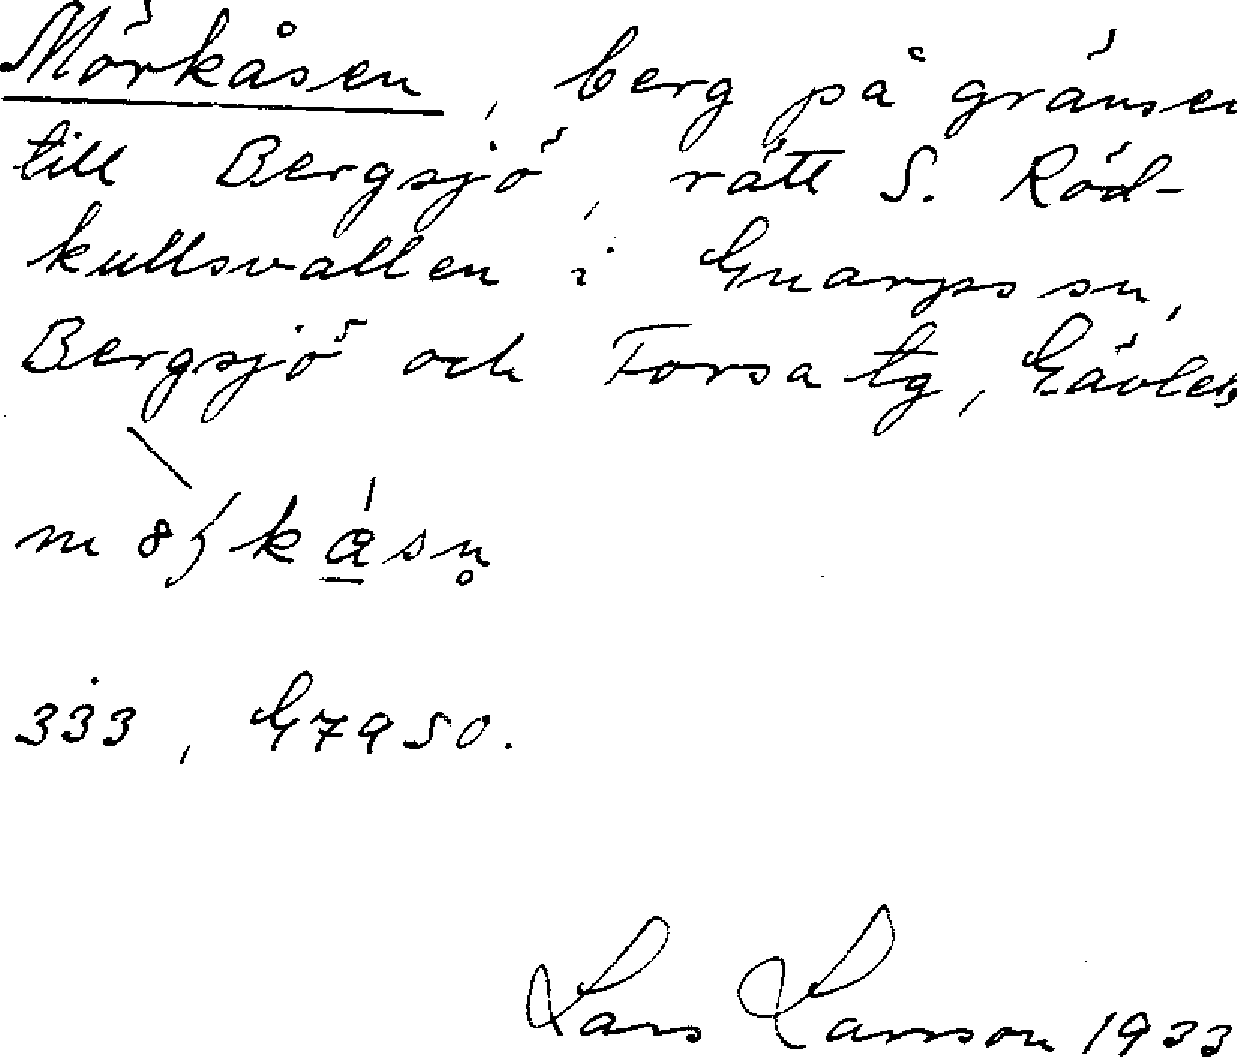 Mörkåsen, berg på gränsen
till Bergsjö, rätt S. Röd-
kullsvallen i Gnarps sn,
Bergsjö och Forsa tg, Gävleb
333, G7950.
Lars Larsson 1933